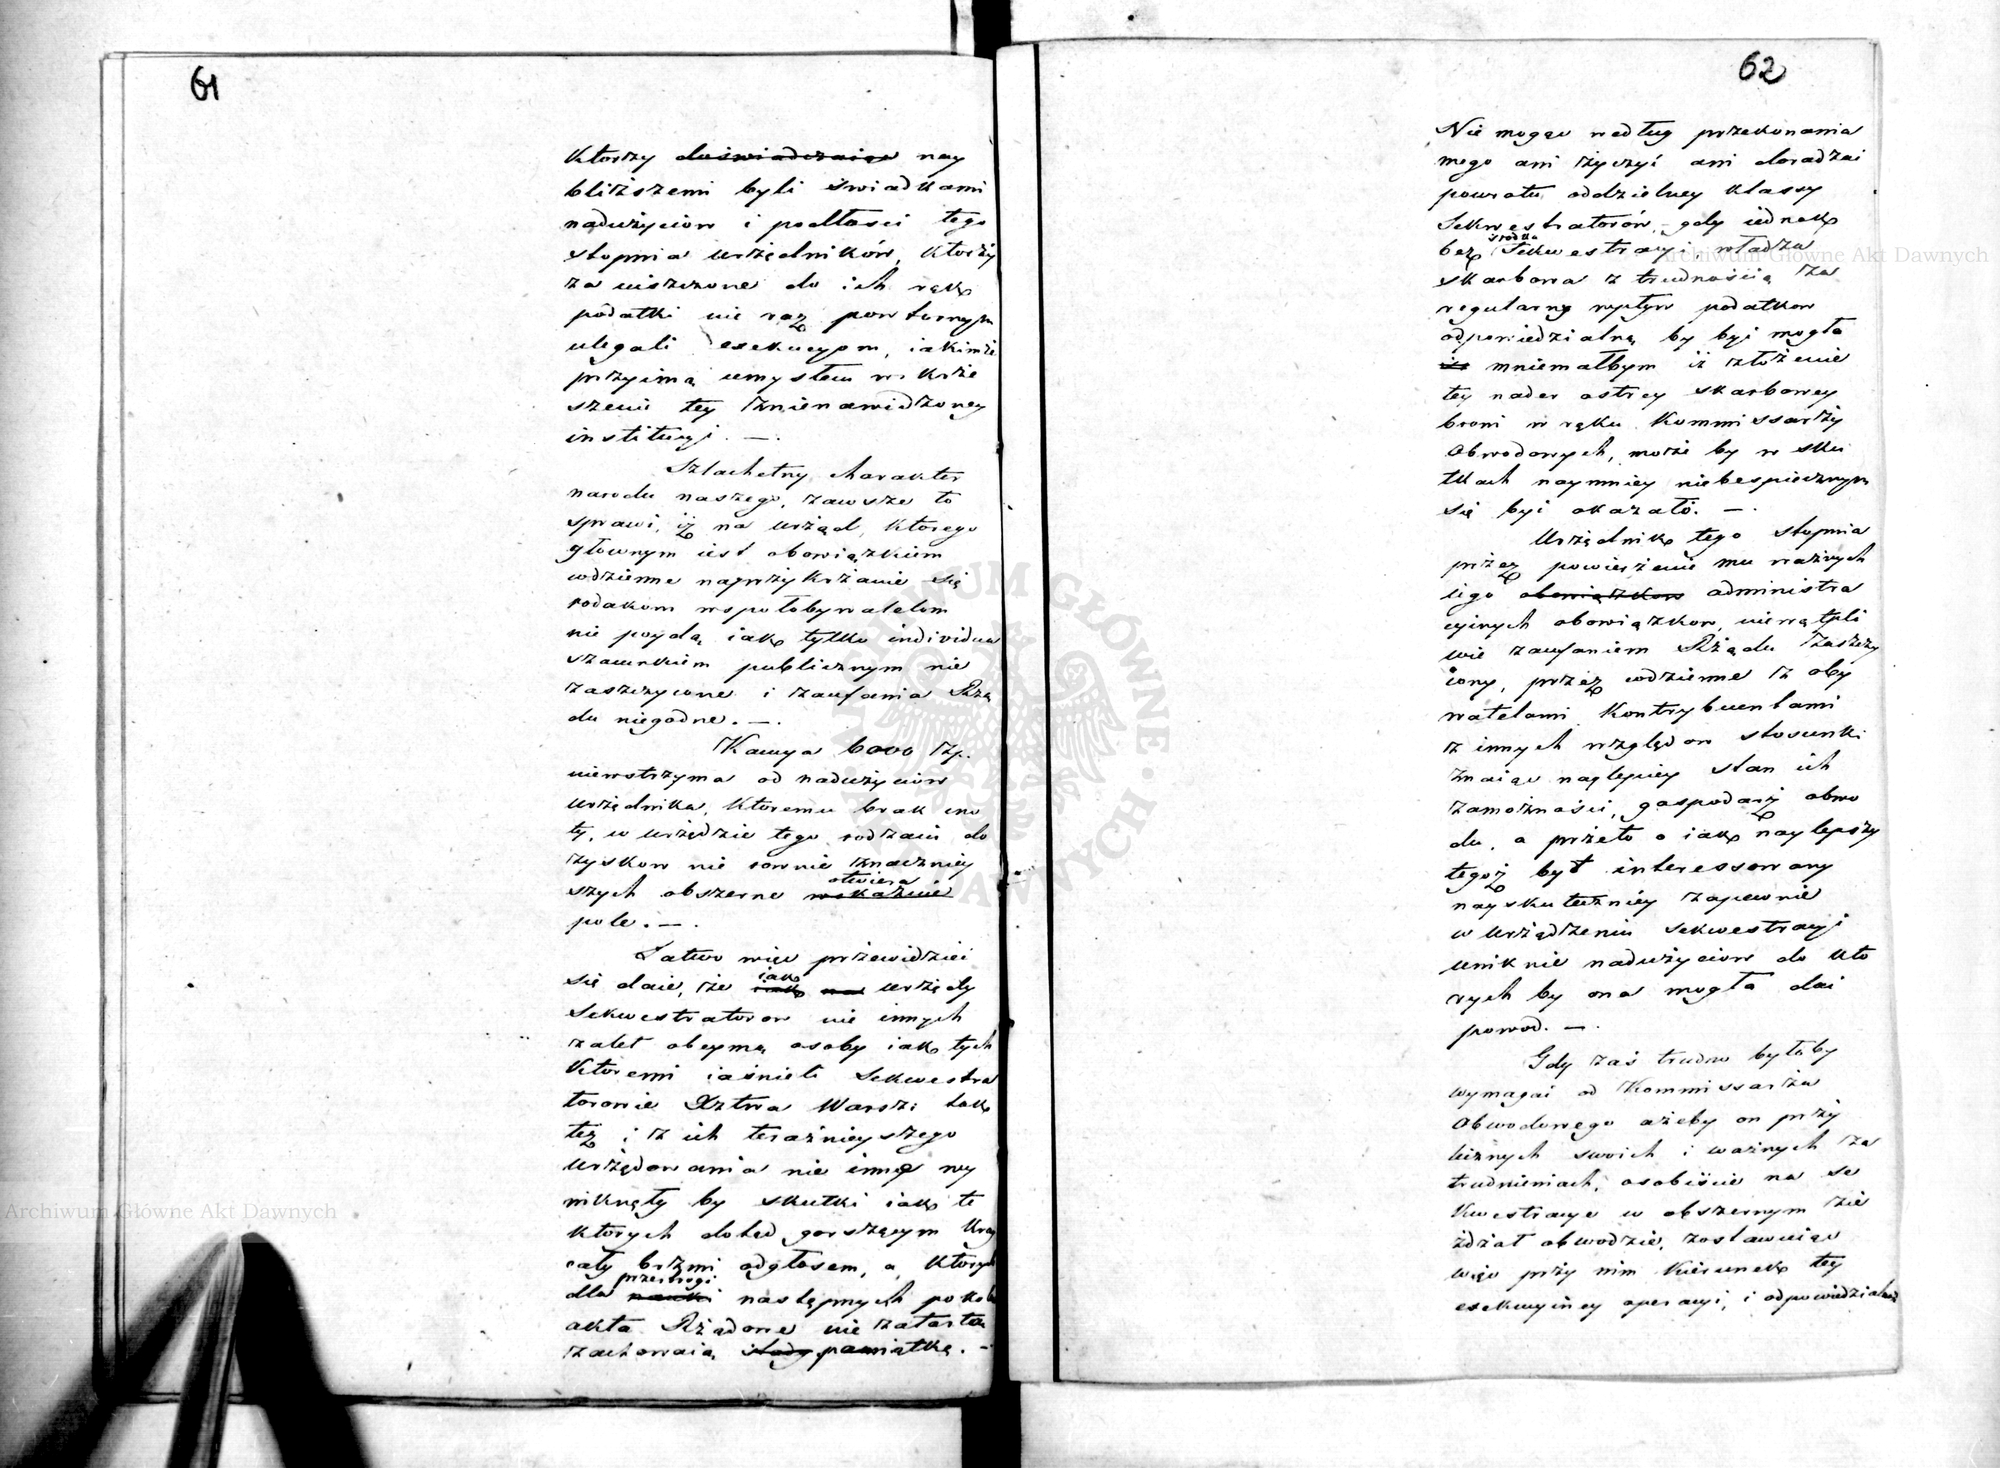 61
Ktorzy doświadczaiąc nay
bliższemi byli świadkami
nadużyciow i podłosci tego
stopnia urzędników, Ktorzy
za uiszczone do ich rąk
podatki nie raz powturnym
ulegali exekucyom, iakimże
przyimą umysłem w Krze
szenie tey znienawidzoney
instytucyi. —.
Szlachetny charakter
narodu naszego, zawsze to
sprawi, iż na urząd, ktorego
głownym iest obowiązkiem
codzienne naprzykrzanie się
rodakom wspołobywatelom
nie poydą iak tylko individua
szacunkiem publicznym nie
zaszczycone i zaufania Rzą
du niegodne. —.
Kaucya 6000 zp.
niewstrzyma od nadużyciow
urzędnika, Ktoremu brak cno
ty, a urzędzie tego rodzaiu do
zyskow nie rownie znaczniey
szych obszerne wskazuie otwiera
pole. —.
Łatwo więc przewidzieć
się daie, że iak iak na urzędy
Sekwestratorow nie innych
zalet obeymą osoby iak tych
Ktoremi iaśnieli Sekwestra
torowie Xztwa Warsz: tak
też i z ich teraźnieyszego
urzędowania nie inne wy
niknęły by skutki iak te
Ktorych dotąd gorszącym Kray
cały brzmi odgłosem, a Ktorych
dla nauki przestrogi następnych pokoleń
akta Rządowe nie zatartą
zachowaią pamiątkę. —
62
Nie mogąc według przekonania
mego ani życzyć ani doradzać
powrotu oddzielney klassy
Sekwestratorów, gdy iednak
bez środka Sekwestracyi władza
skarbowa z trudnością za
regularny wpływ podatkow
odpowiedzialną by być mogła
iż mniemałbym iż złożenie
tey nader ostrey skarbowey
broni w ręku Kommissarży
Obwodowych, może by w sku
tkach naymniey niebespiecznym
się być okazało. —.
Urzędnik tego stopnia
przez powierzenie mu ważnych
iego obowiązkow administra
cyinych obowiązkow, niewątpli
wie zaufaniem Rządu zaszczy
cony, przez codzienne z oby
watelami Kontrybuentami
z innych względow stosunki
znaiąc naylepiey stan ich
zamożności, gospodarz obwo
du, a przeto o iak naylepszy
tegoż byt interessowany
nayskuteczniey zapewnie
w urządzeniu sekwestracyi
uniknie nadużyciow do kto
rych by ona mogła dać
powod. —.
Gdy zaś trudno byłoby
wymagać od Kommissarza
Obwodowego ażeby on przy
licznych swoich i ważnych za
trudnieniach, osobiście na se
kwestracye w obszernym zie
żdżał obwodzie, zostawuiąc
więc przy nim kierunek tey
exekucyiney operacyi, i odpowiedzialność